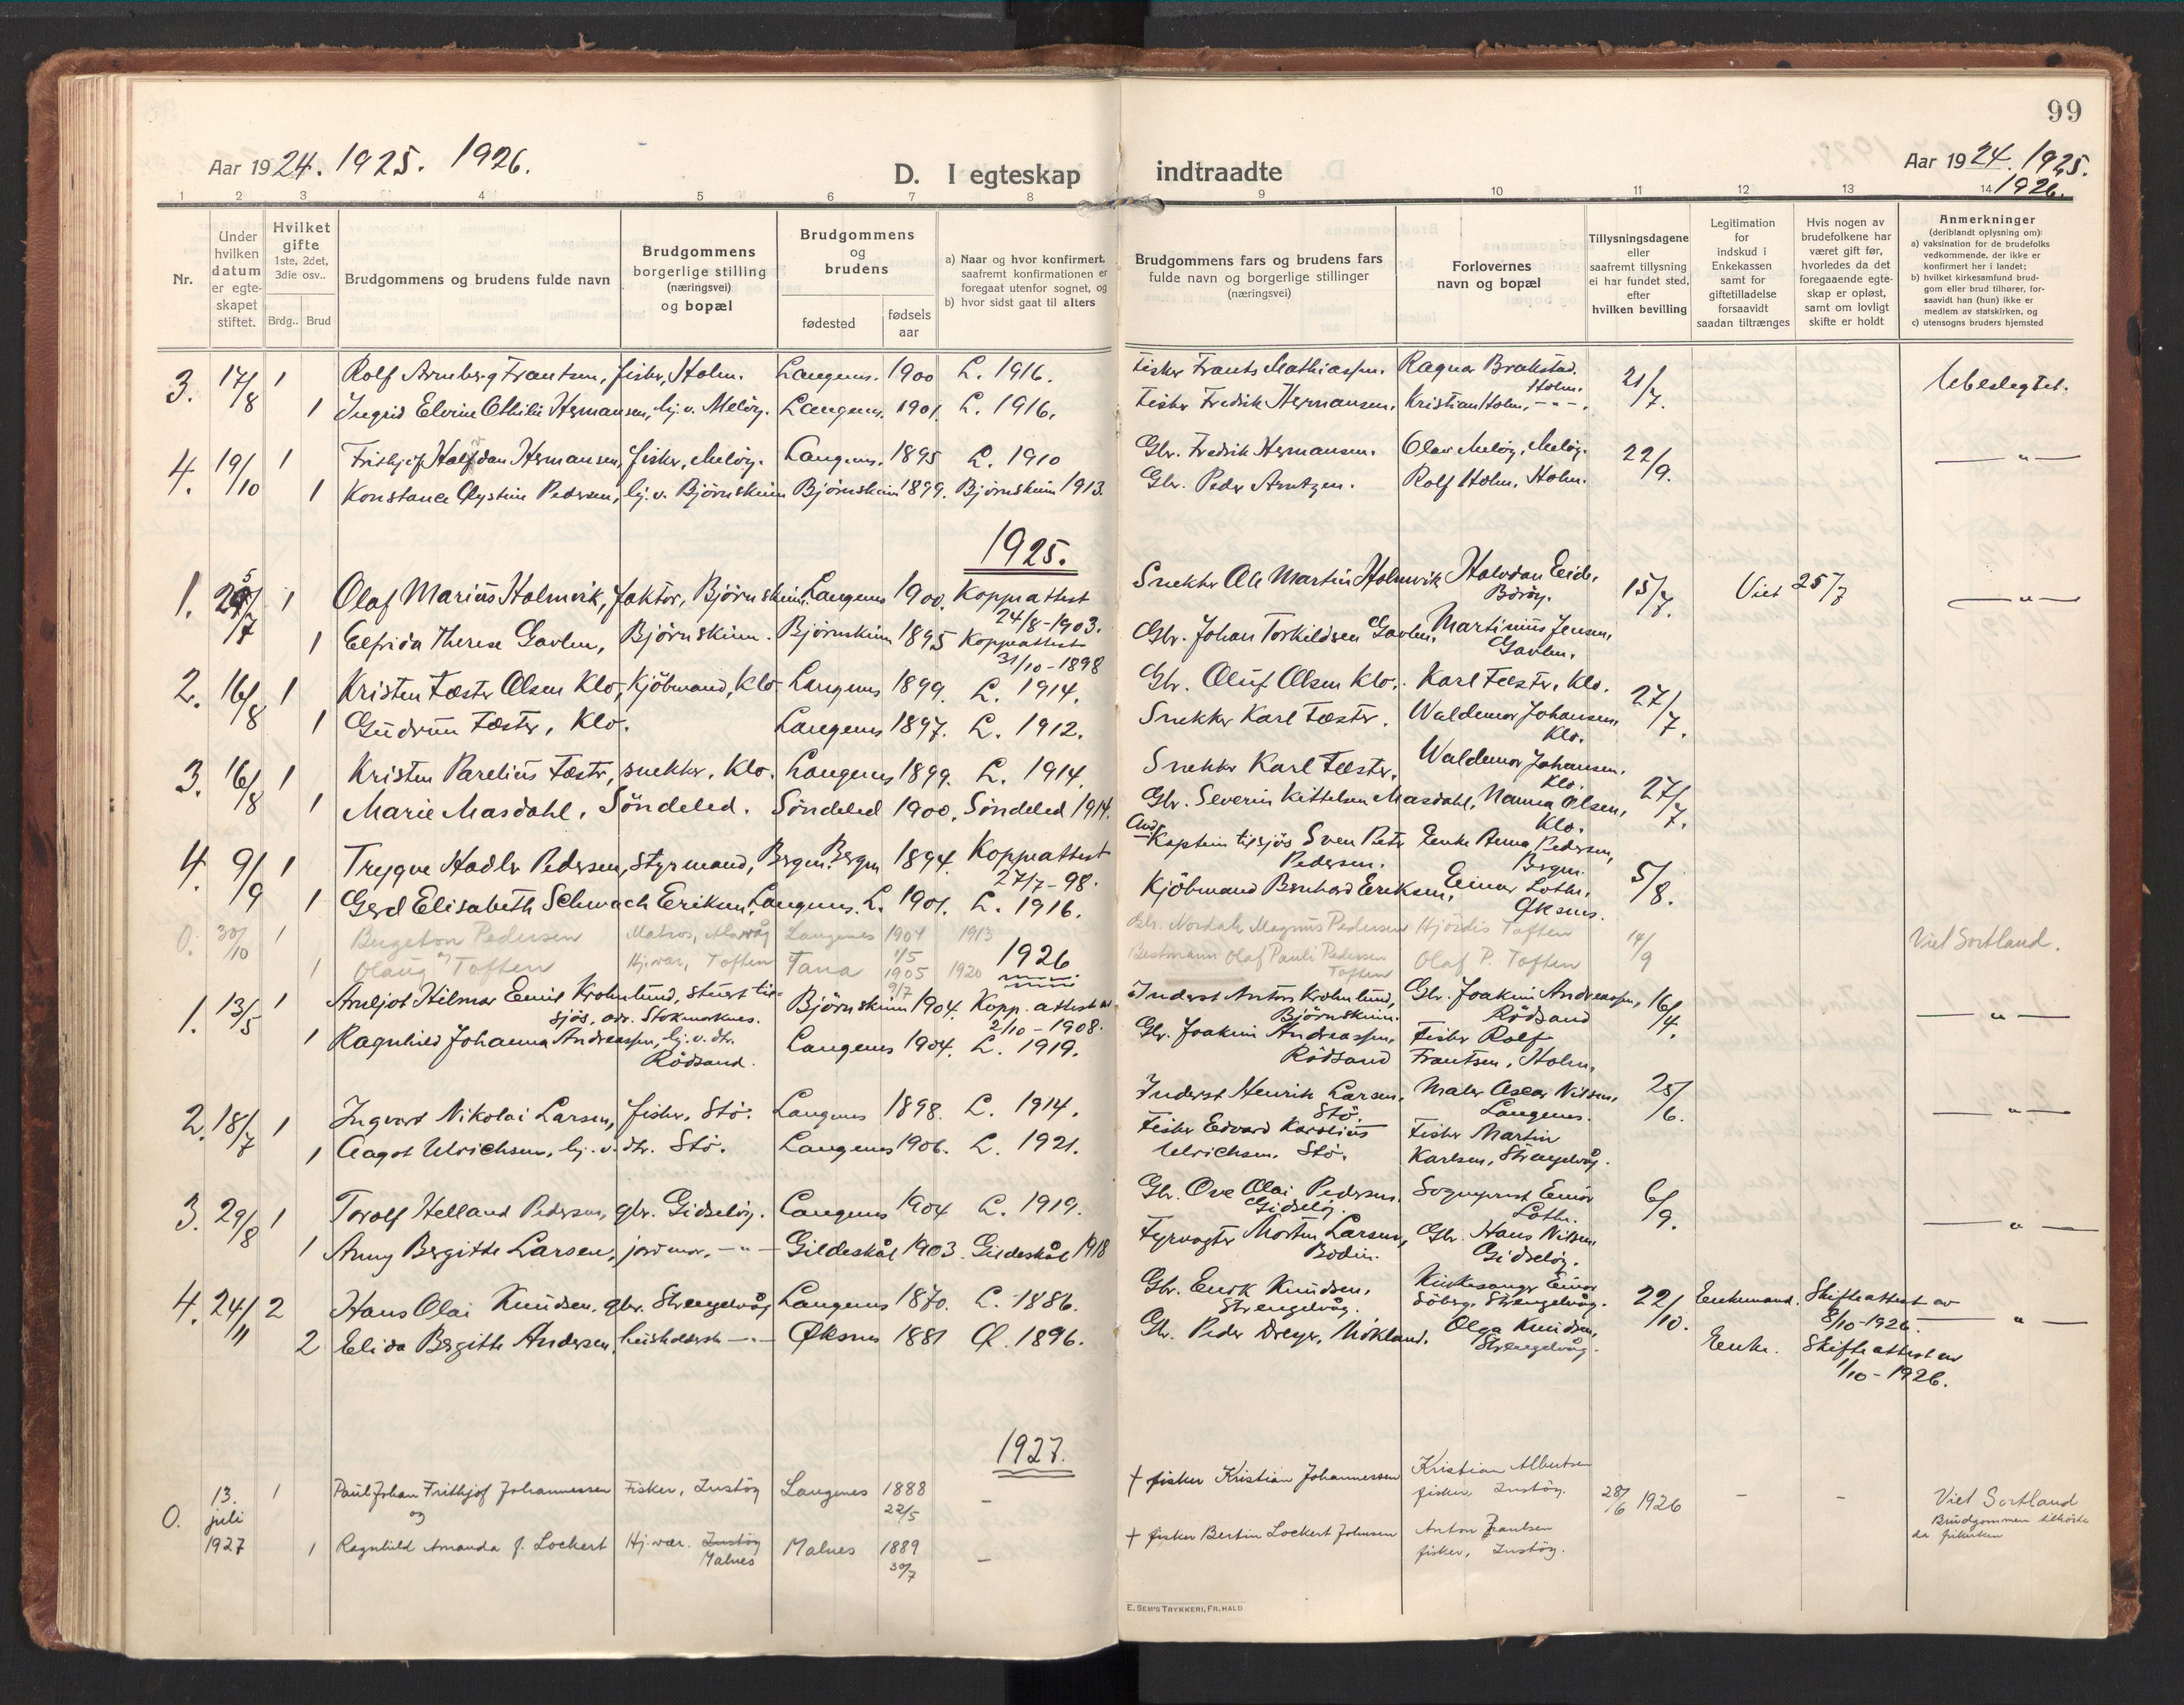 99
Aar 1924. 1925. 1926.
D. I egteskap indtraadte
Aar 1924. 1925.
1926.
1 2 3 4 5 6 7 8 9 10 11 12 13 14
Nr.
Under hvilken datum er egteskapet stiftet.
Hvilket gifte 1ste, 2det, 3die osv..
Brdg.. Brud
Brudgommens og brudens fulde navn
Brudgommens borgerlige stilling (næringsvei) og bopæl
Brudgommens og brudens
fødested
fødsels aar
a) Naar og hvor konfirmert, saafremt konfirmationen er foregaat utenfor sognet, og
b) hvor sidst gaat til alters
Brudgommens fars og brudens fars fulde navn og borgerlige stillinger (næringsvei)
Forlovernes navn og bopæl
Tillysningsdagene eller saafremt tillysning ei har fundet sted, efter hvilken bevilling
Legitimation for indskud i Enkekassen samt for giftetilladelse forsaavidt saadan tiltrænges
Hvis nogen av brudefolkene har været gift før, hvorledes da det foregaaende egteskap er opløst, samt om lovligt skifte er holdt
Anmerkninger (deriblandt oplysning om):
a) vaksination for de brudefolks vedkommende, der ikke er konfirmert her i landet;
b) hvilket kirkesamfund brudgom eller brud tilhører, forsaavidt han (hun) ikke er medlem av statskirken, og
c) utensogns bruders hjemsted
3. 17/8 1 Rolf Arnberg Frantsen, fisker, Holm. Langenes. 1900 L. 1916. Fisker Frants Mathiassen. Ragnar Brakstad. Holm. 21/7. Ubeslegtet.
1 Ingrid Elvine Othilie Hermansen, hj. v. Meløy. Langenes. 1901. L. 1916. Fisker Fredrik Hermansen. Kristian Holm, -"-.
4. 19/10 1 Frithjof Halfdan Hermansen, fisker, Meløy. Langenes. 1895 L. 1910 Gbr. Fredrik Hermansen. Olav Meløy, Meløy. 22/9. -"-
1 Konstance Øystine Pedersen, hj. v. Bjørnskinn Bjørnskinn 1899. Bjørnskinn 1913. Gbr. Peder Arntzen. Rolf Holm, Holm.
1925.
1. 25/7 1 Olaf Marius Holmvik, faktor, Bjørnskinn. Langenes 1900. Koppeattest 24/8-1903. Snekker Ole Martin Holmvik Halvdan Eide, Børøy. 15/7. Viet 25/7 -"-
1 Elfrida Therese Gavlen, Bjørnskinn. Bjørnskinn 1895 Koppeattest 31/10-1898 Gbr. Johan Torkildsen Gavlen. Martinius Jensen, Gavlen.
2. 16/8 1 Kristen Fæster Olsen Klo, Kjöbmand, Klo. Langenes 1899. L. 1914. Gbr. Oluf Olsen Klo. Karl Fæster, Klo. 27/7.
1 Gudrun Fæster, Klo. Langenes 1897. L. 1912. Snekker Karl Fæster. Waldemar Johansen, Klo.
3. 16/8 1 Kristen Parelius Fæster, snekker, Klo. Langenes 1899. L. 1914. Snekker Karl Fæster. Waldemar Johansen, Klo. 27/7.
1 Marie Masdahl, Söndeled. Söndeled 1900. Söndeled 1914. Gbr. Severin Kittelsen Masdahl. Nanna Olsen, Klo.
4. 9/9 1 Trygve Hadler Pedersen, styrmand, Bergen. Bergen 1894. Koppeattest 27/7-98. Kaptein tilsjös Sven Peter Pedersen. Enke Anna Pedersen, Bergen. 5/8.
1 Gerd Elisabeth Schwach Eriksen, Langenes. L. 1901. L. 1916. Kjöbmand Bernhard Eriksen. Einar Lothe, Øksnes.
0. 30/10 1 Bergeton Pedersen Matros, Alsvåg Langenes 1904 1/5 1913 Gbr. Nordahl Magnus Pedersen Hjördis Toften 14/9 Viet Sortland.
1 og Olaug Toften Hj.vær, Toften Tana 1905 9/7 1920 Bestmann Olaf Pauli Pedersen Toften Olaf P. Toften
1926
1. 13/5 1 Arnljot Hilmar Emil Krohnlund, stuert tilsjös, adr. Stokmarknes. Bjørnskinn 1904. Kopp. attest av 2/10-1908. Inderst Anton Krohnlund, Bjørnskinn. Gbr. Joakim Andreassen, Rödsand 16/4. -"-
1 Ragnhild Johanna Andreassen, hj. v. dtr. Rödsand. Langenes 1904. L. 1919. Gbr. Joakim Andreassen, Rödsand Fisker Rolf Frantsen, Holm.
2. 18/7 1 Ingvart Nikolai Larsen, fisker, Stö. Langenes 1898. L. 1914. Inderst Henrik Larsen, Stö. Maler Oscar Nilsen, Langenes. 25/6. -"-
1 Aagot Ulrichsen, hj. v. dtr. Stö. Langenes 1906. L. 1921. Fisker Edvard Karolius Ulrichsen, Stö. Fisker Martin Karlsen, Strengelvåg.
3. 29/8 1 Torolf Helland Pedersen, gbr. Gidsløy. Langenes 1904 L. 1919. Gbr. Ove Olai Pedersen. Gidsløy. Sogneprest Einar Lothe. 6/9. -"-
1 Anny Bergitte Larsen, jordmor, -"- Gildeskål 1903. Gildeskål 1918 Fyrvogter Morten Larsen, Bodin. Gbr. Hans Nilsen Gidsløy.
4. 24/11 2 Hans Olai Knudsen, gbr. Strengelvåg Langenes 1870. L. 1886. Gbr. Enok Knudsen, Strengelvåg. Kirkesanger Einar Söberg, Strengelvåg. 22/10. Enkemand. Skifteattest av 8/10-1926. -"-
2 Elida Bergitte Andersen, husholdersk -"- Øksnes 1881 Ø. 1896. Gbr. Peder Dreyer, Mökland. Olga Knudsen, Strengelvåg. Enke. Skifteattest av 1/10-1926.
1927.
0. 13. juli 1927 1 Paul Johan Frithjof Johannessen Fisker, Instöy Langenes 1888 22/5 - + fisker Kristian Johannessen Kristian Albertsen fisker, Instöy. 28/6 1926 - - Viet Sortland Brudgommen tilhörte da frikirken
og
1 Ragnhild Amanda J. Lockert Hj. vær. Instöy Malnes Malnes 1889 30/7 - + fisker Bertin Lockert Johnsen Anton Paulsen fisker, Instöy.
E. SEM'S TRYKKERI, FR.HALD